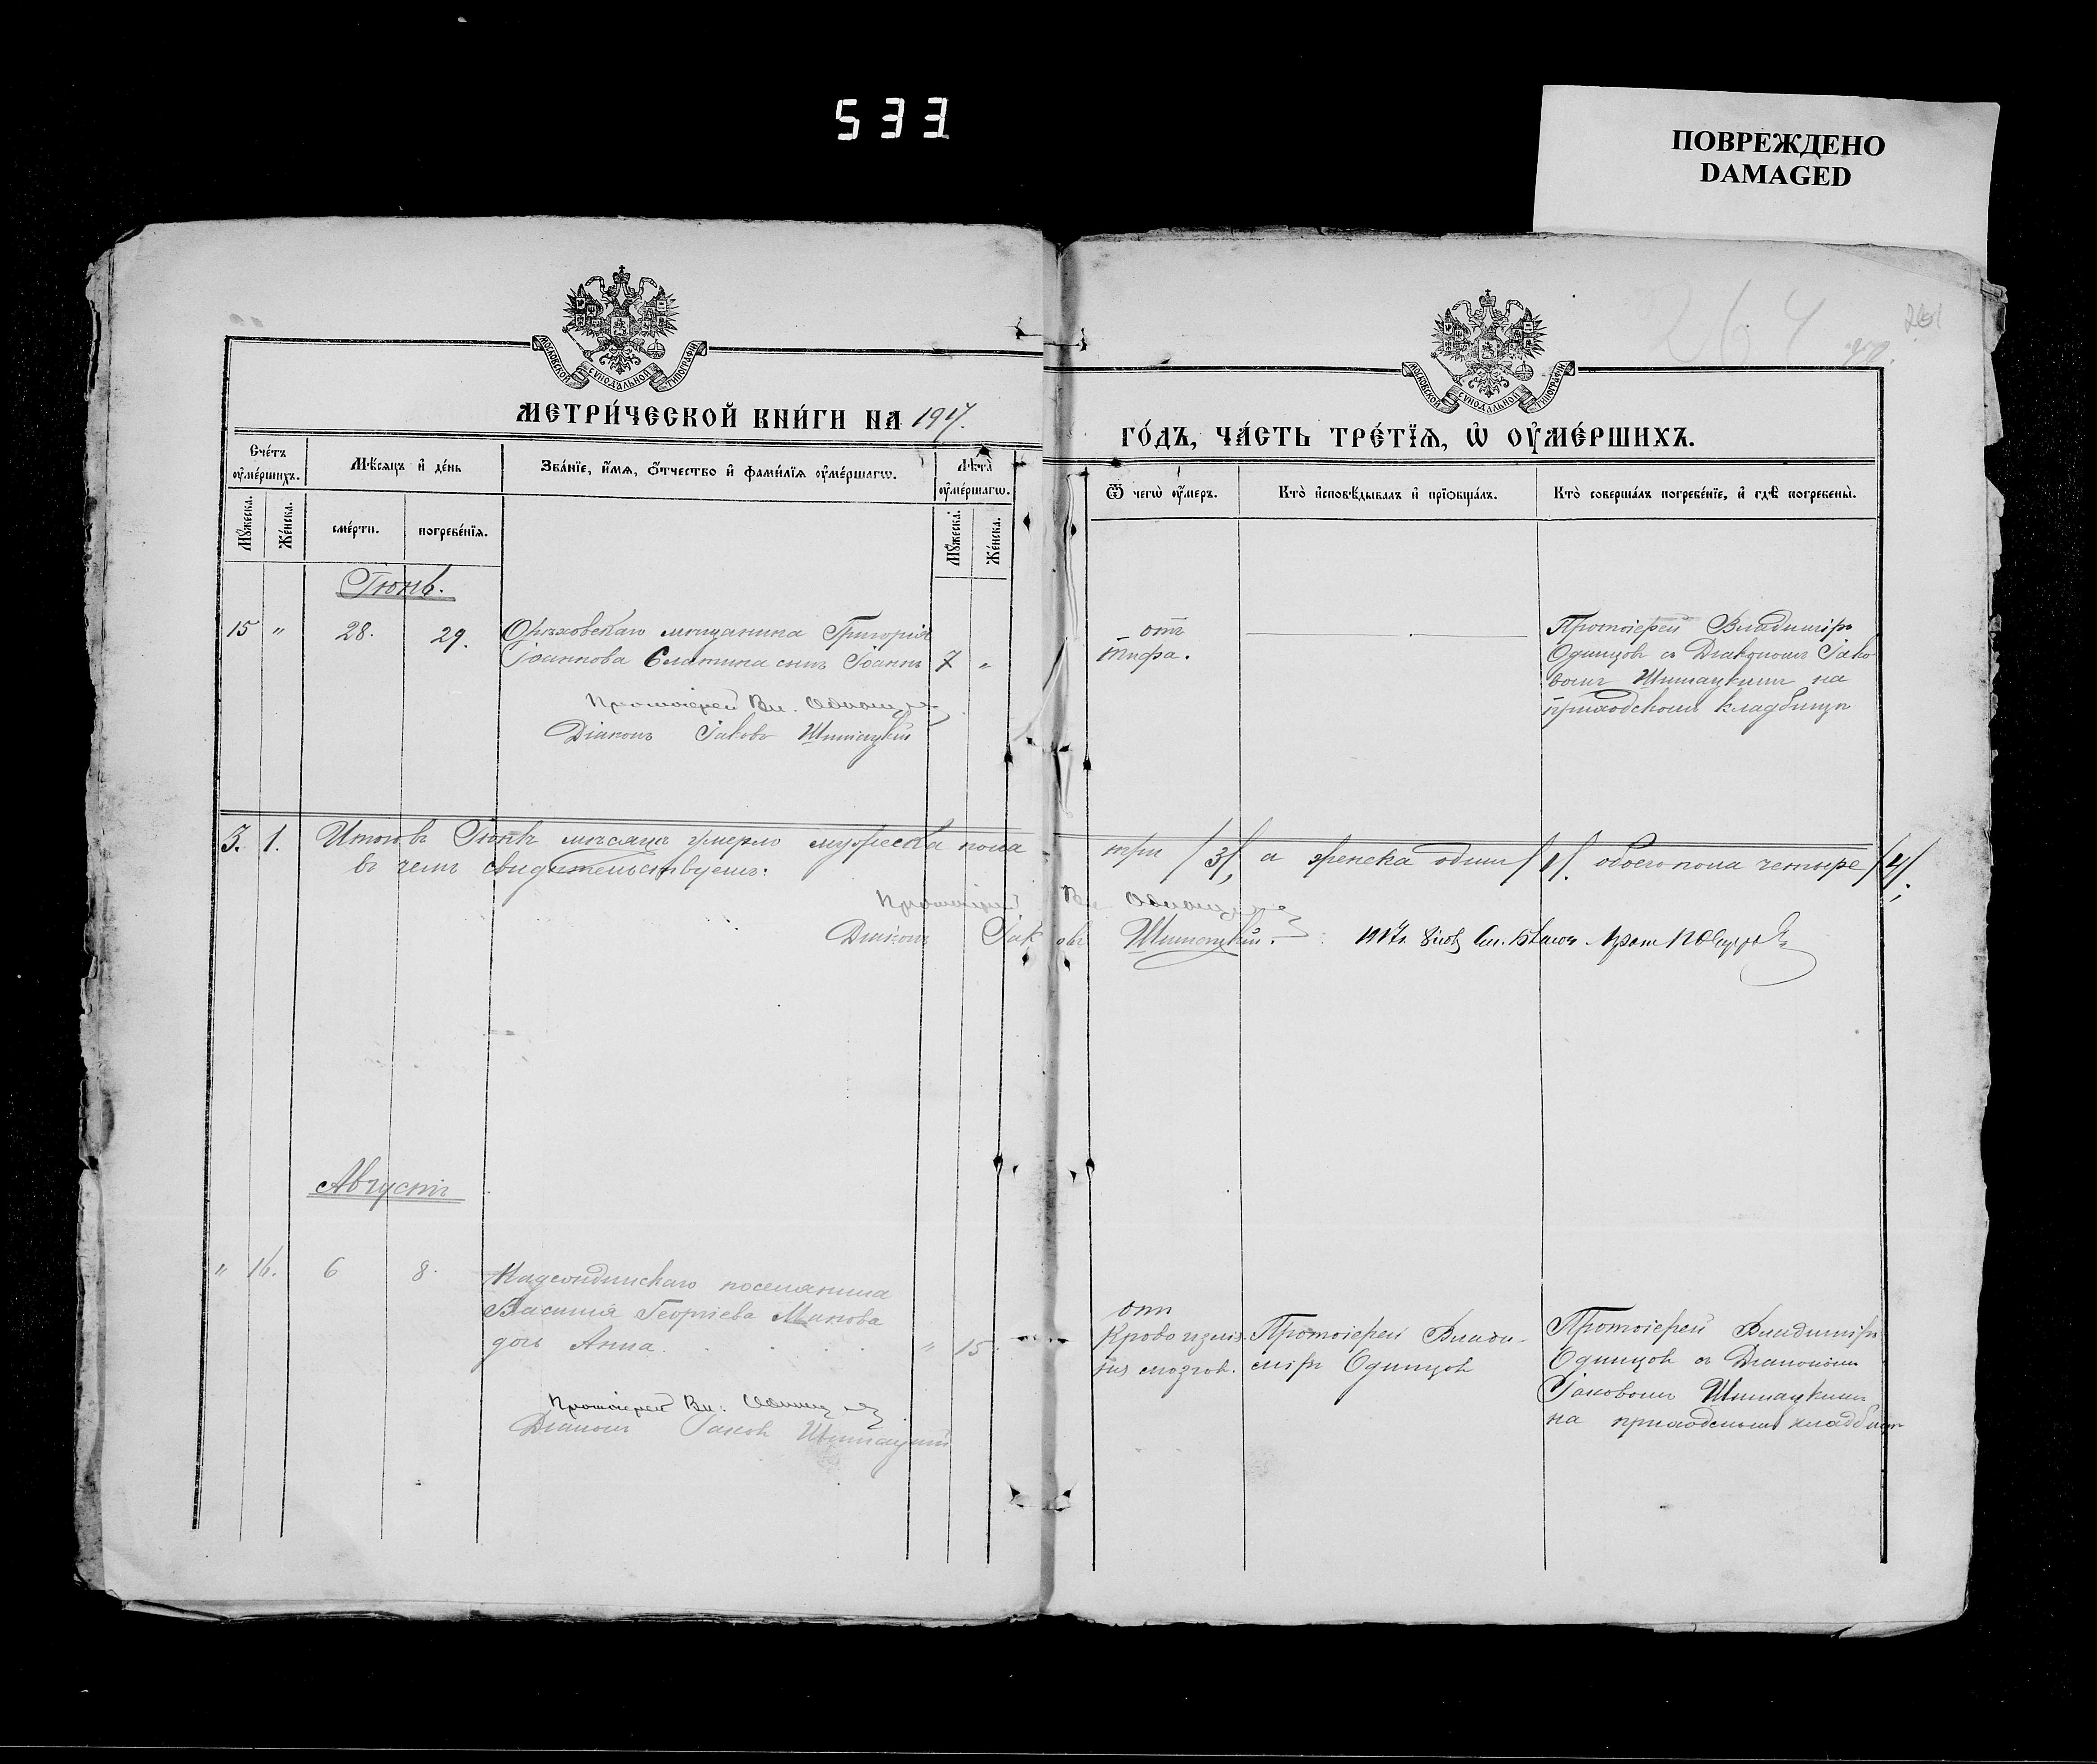 533
ПОВРЕЖДЕНО
DAMAGED
264
МОСКОВСКОЙ СУНОДАЛЬНОЙ ТИПОГРАФИИ
МОСКОВСКОЙ СУНОДАЛЬНОЙ ТИПОГРАФИИ
МЕТРИ́ЧЕСКОЙ КНИ́ГИ НА 1917.
ГО́ДЪ, ЧА́СТЬ ТРЕ́ТЇѦ, Ѡ҆ ОУ҆МЕ́РШИХЪ.
Сче́тъ оу҆ме́ршихъ.
Мꙋ́жеска.
Же́нска.
Мѣ́сѧцъ и҆ де́нь
сме́рти.
погребе́нїѧ.
Зва́нїе, и҆́мѧ, ѻ҆́тчество и҆ фами́лїѧ оу҆ме́ршагѡ.
Лѣ́та оу҆ме́ршагѡ.
Мꙋ́жеска.
Же́нска.
Ѿ чегѡ̀ оу҆́меръ.
Кто̀ и҆сповѣ́дывалъ и҆ прїѡбща́лъ.
Кто̀ соверша́лъ погребе́нїе, и҆ гдѣ̀ погребены̀.
Іюнь.
15 " 28. 29. Орѣховскаго мѣщанина Григорія
Іоаннова Слатина сынъ Іоаннъ 7 "
Протоіерей Вл. Одинцовъ
Діаконъ Іаковъ Шишацкій
отъ
тифа.
Протоіерей Владиміръ
Одинцовъ съ Діакономъ Іако
вомъ Шишацкимъ на
приходскомъ кладбищѣ
3. 1. Итого въ Іюнѣ мѣсяцѣ умерло мужеска пола три /3/, а женска одинъ /1/. обоего пола четыре /4/.
въ чемъ свидѣтельствуемъ:
Протоіерей Вл. Одинцовъ
Діаконъ Іаковъ Шишацкій.
Августъ
" 16. 6 8. поселянина
Василія Георгіева Манова
дочь Анна. " 15.
Протоіерей Вл. Одинцовъ
Діаконъ Іаковъ Шишацкій
отъ
Кровоизлія
нія мозгов.
Протоіерей Влади-
міръ Одинцовъ
Протоіерей Владиміръ
Одинцовъ съ Діакономъ
Іаковомъ Шишацкимъ
на приходскомъ кладбищѣ